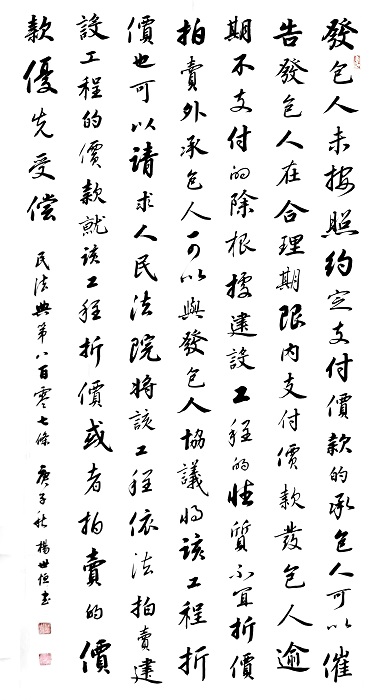 發包人未按照約定支付價款的承包人可以催
告發包人在合理期限内支付價款發包人逾
期不支付的除根據建設工程的性質不宜折價
拍賣外承包人可以與發包人協議將該工程折
價也可以請求人民法院將該工程依法拍賣建
設工程的價款就該工程折價或者拍賣的價
款優先受偿 民法典第八百零七條 庚子秋 楊世恒書